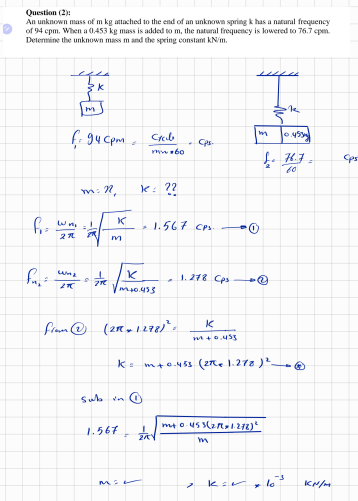 Question (2):
An unknown mass of m kg attached to the end of an unknown spring k has a natural frequency
of 94 cpm. When a 0.453 kg mass is added to m, the natural frequency is lowered to 76.7 cpm.
Determine the unknown mass m and the spring constant kN/m.
k
m
k
m 0.453kg
f₁ = 94 cpm = cycle / min*60 = cps.
f₂ = 76.7 / 60 = cps
m = ??, k = ??
f₁ = ωn₁ / 2π = 1/2π √(k / m) = 1.567 cps. → ①
fn₂ = ωn₂ / 2π = 1/2π √(k / m+0.453) = 1.278 cps → ②
from ② (2π * 1.278)² = k / m + 0.453
k = m + 0.453 (2π * 1.278)² → ⊛
sub in ①
1.567 = 1/2π √(m + 0.453(2π*1.278)² / m)
m = ✓ , k = ✓ * 10⁻³ KN/m